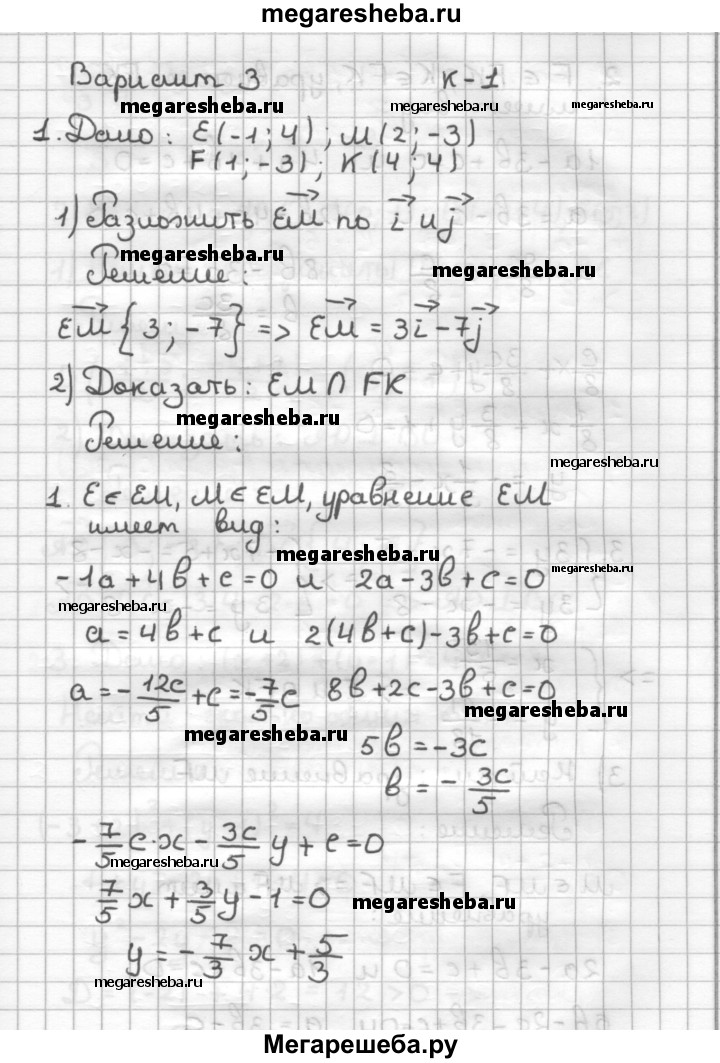 megaresheba.ru
Вариант 3 К-1
megaresheba.ru megaresheba.ru megaresheba.ru
1. Дано: E(-1; 4); M(2; -3)
F(1; -3); K(4; 4)
1) Разложить EM→ по i→ и j→
megaresheba.ru
Решение: megaresheba.ru
EM→ {3; -7} => EM→ = 3i→ - 7j→
2) Доказать: EM ∩ FK
megaresheba.ru
Решение:
megaresheba.ru
1. E ∈ EM, M ∈ EM, уравнение EM
имеет вид:
megaresheba.ru
-1a + 4b + c = 0 и 2a - 3b + c = 0 megaresheba.ru
megaresheba.ru
a = 4b + c и 2(4b + c) - 3b + c = 0
a = -12c/5 + c = -7/5 c 8b + 2c - 3b + c = 0
megaresheba.ru
megaresheba.ru
5b = -3c
b = -3c/5
-7/5 c·x - 3c/5 y + c = 0
megaresheba.ru
7/5 x + 3/5 y - 1 = 0 megaresheba.ru
y = -7/3 x + 5/3
megaresheba.ru
Мегарешеба.ру